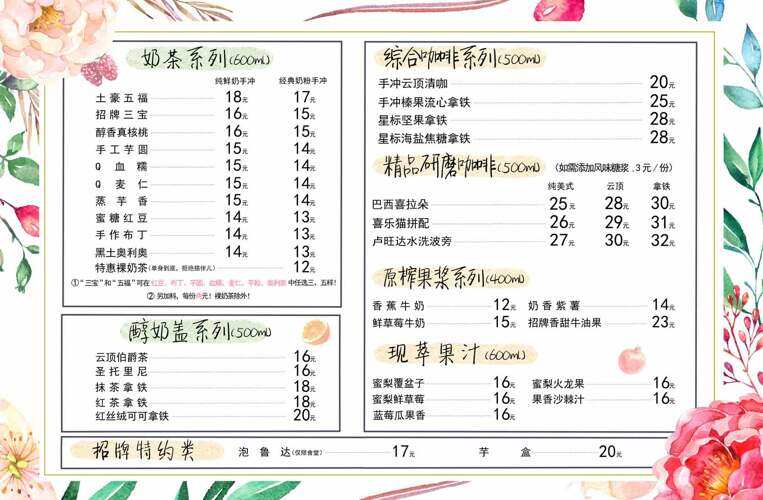 奶茶系列(600mL)
纯鲜奶手冲 经典奶粉手冲
土豪五福 18元 17元
招牌三宝 16元 15元
醇香真核桃 16元 15元
手工芋圆 15元 14元
Q血糯 15元 14元
Q麦仁 15元 14元
蒸芋香 15元 14元
蜜糖红豆 14元 13元
手作布丁 14元 13元
黑土奥利奥 14元 13元
特惠裸奶茶(单身到底，拒绝搭伴儿) 12元
①“三宝”和“五福”可在红豆、布丁、芋圆、血糯、麦仁、芋粒、奥利奥中任选三、五样！
②另加料，每份 元！裸奶茶除外！
醇奶盖系列(500mL)
云顶伯爵茶 16元
圣托里尼 16元
抹茶拿铁 18元
红茶拿铁 18元
红丝绒可可拿铁 20元
综合咖啡系列(500mL)
手冲云顶清咖 20元
手冲榛果流心拿铁 25元
星标坚果拿铁 28元
星标海盐焦糖拿铁 28元
精品研磨咖啡(500mL) (如需添加风味糖浆.3元/份)
纯美式 云顶 拿铁
巴西喜拉朵 25元 28元 30元
喜乐猫拼配 26元 29元 31元
卢旺达水洗波旁 27元 30元 32元
原榨果浆系列(400mL)
香蕉牛奶 12元 奶香紫薯 14元
鲜草莓牛奶 15元 招牌香甜牛油果 23元
现萃果汁(600mL)
蜜梨覆盆子 16元 蜜梨火龙果 16元
蜜梨鲜草莓 16元 果香沙棘汁 16元
蓝莓瓜果香 16元
招牌特约类 泡鲁达(仅限食堂) 17元 芋盒 20元